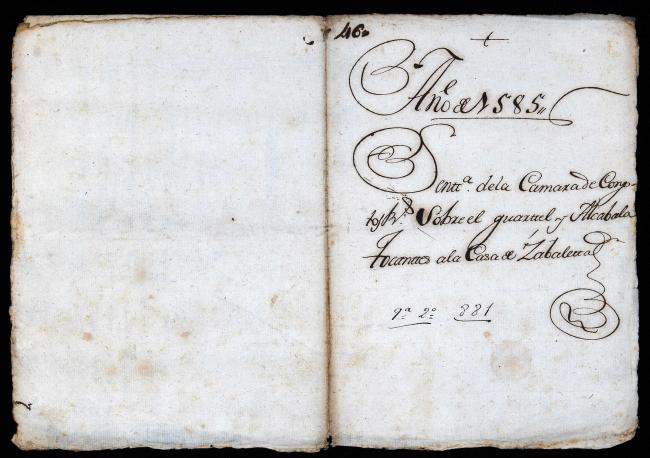 46.
Año de 1585,,
Sentt.ª dela Camara de Comp-
tos R.s Sobre el quartel y Alcabala
tocantes ala Casa de Zabaleta
9ª 2º 881